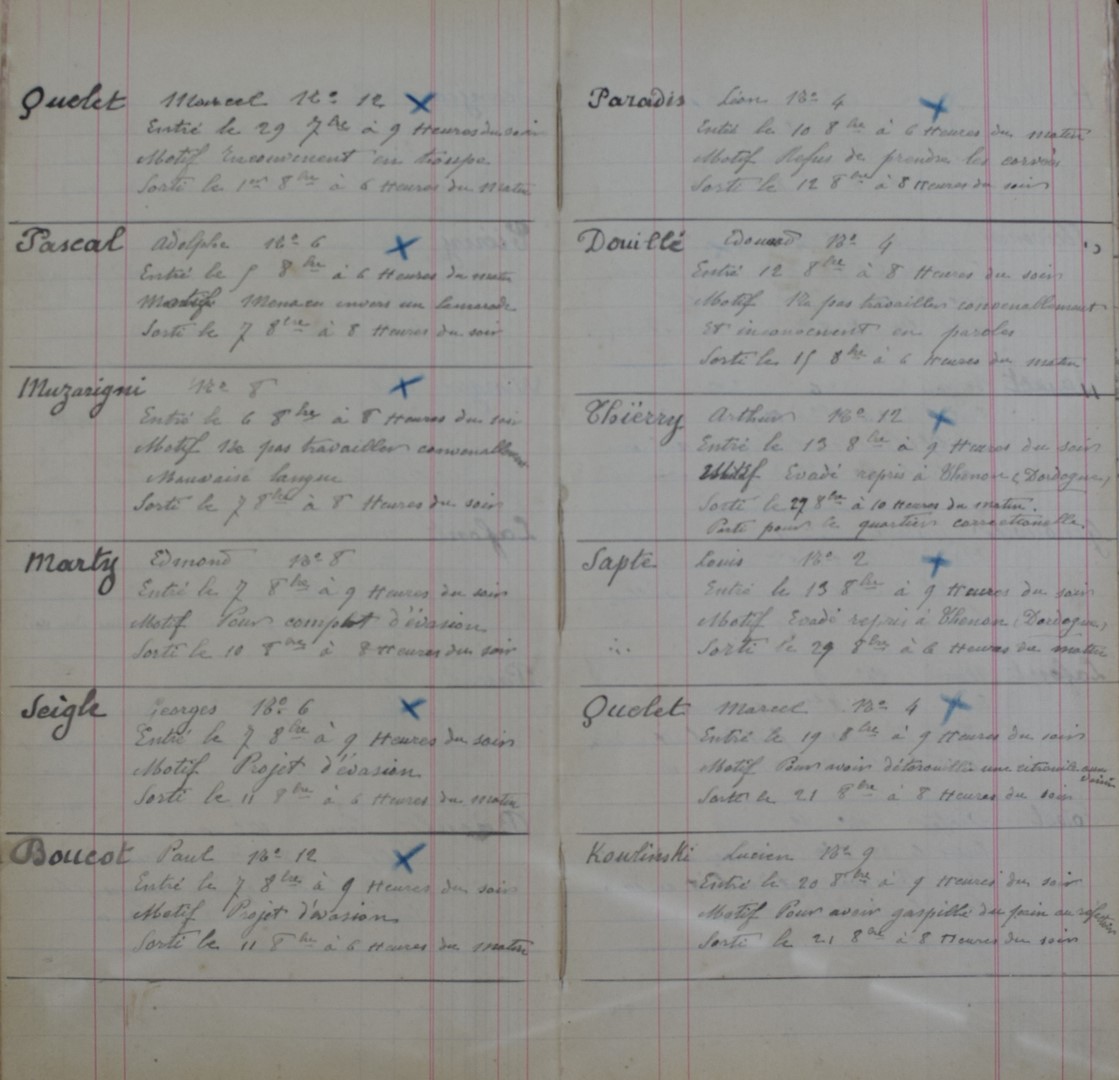 Quelet Marcel No 12
Entré le 29 7bre à 9 Heures du soir
Motif Inconvenent en troupe
Sorti le 1er 8bre à 6 Heures du Matin
Pascal Adolphe No 6
Entré le 5 8bre à 6 Heures du matin
Motifs Menaces envers un Camarade
Sorti le 7 8bre à 8 Heures du soir
Muzarigni No 8
Entré le 6 8bre à 8 Heures du soir
Motif Ne pas travailler convenablement
Mauvaise langue
Sorti le 7 8bre à 8 Heures du soir
Marty Edmond No 8
Entré le 7 8bre à 9 Heures du soir
Motif Pour complot d'évasion
Sorti le 10 8bre à 8 Heures du soir
Seigle Georges No 6
Entré le 7 8bre à 9 Heures du soir
Motif Projet d'évasion
Sorti le 11 8bre à 6 Heures du matin
Boucot Paul No 12
Entré le 7 8bre à 9 Heures du soir
Motif Projet d'évasion
Sorti le 11 8bre à 6 Heures du matin
Paradis Léon No 4
Entré le 10 8bre à 6 Heures du matin
Motif Refus de prendre les corvées
Sorti le 12 8bre à 8 Heures du soir
Douillé Edouard No 4
Entré 12 8bre à 8 Heures du soir
Motif Ne pas travailler convenablement
Et inconvenent en paroles
Sorti le 15 8bre à 6 Heures du matin
Thïerry Arthur No 12
Entré le 13 8bre à 9 Heures du soir
Motif Evadé repris à Thenon (Dordogne)
Sorti le 29 8bre à 10 Heures du matin.
Parti pour le quartier correctionelle.
Sapte Louis No 2
Entré le 13 8bre à 9 Heures du soir
Motif Evadé repris à Thenon (Dordogne)
Sorti le 29 8bre à 6 Heures du matin
Quelet Marcel No 4
Entré le 19 8bre à 9 Heures du soir
Motif Pour avoir une citrouille
Sorti le 21 8bre à 8 Heures du soir
Kowlinski Lucien No 9
Entré le 20 8bre à 9 Heures du soir
Motif Pour avoir gaspillé du pain au refectoire
Sorti le 21 8bre à 8 Heures du soir